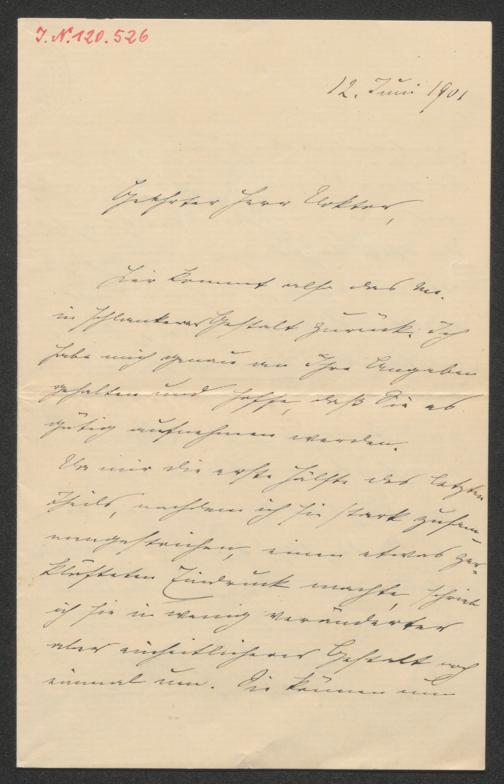 J.N. 120.526
12. Juni 1901
Geehrter Herr Doktor,
hier kommt also das Ms.
in schlankerer Gestalt zurück. Ich
habe mich genau an Ihre Angaben
gehalten und hoffe, daß Sie es
gütig aufnehmen werden.
Da mir die erste Hälfte des letzten
Theils, nachdem ich sie stark zusam-
mengestrichen, einen etwas zer-
klüfteten Eindruck machte, schrieb
ich sie in wenig veränderter
aber einheitlicherer Gestalt noch
einmal um. Sie können nun